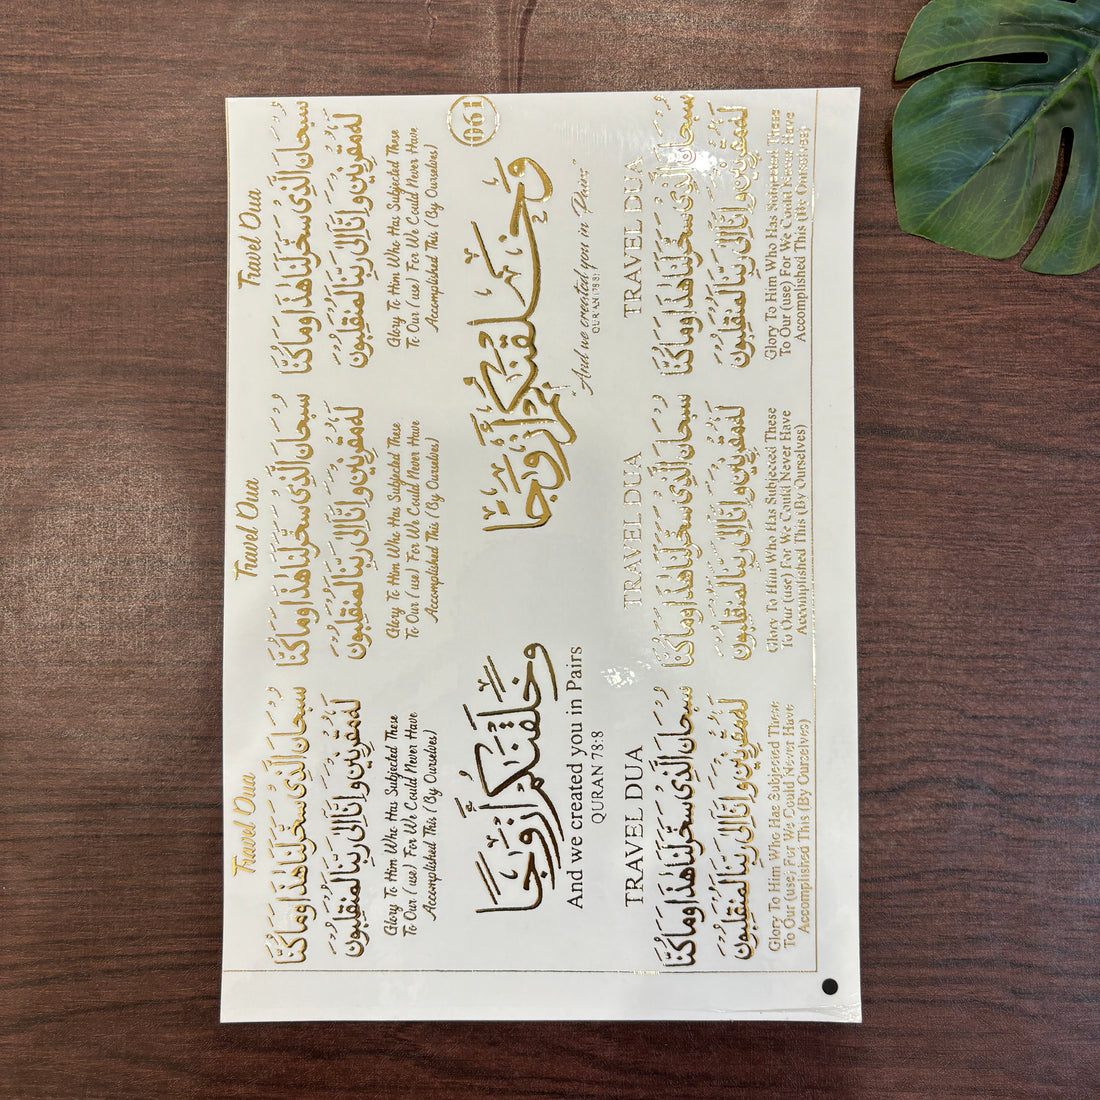 Travel Dua
سُبْحَانَ الَّذِي سَخَّرَ لَنَا هٰذَا وَمَا كُنَّا
لَهُ مُقْرِنِينَ وَإِنَّا إِلَىٰ رَبِّنَا لَمُنقَلِبُونَ
Glory To Him Who Has Subjected These
To Our ( use) For We Could Never Have
Accomplished This ( By Ourselves)
Travel Dua
سُبْحَانَ الَّذِي سَخَّرَ لَنَا هٰذَا وَمَا كُنَّا
لَهُ مُقْرِنِينَ وَإِنَّا إِلَىٰ رَبِّنَا لَمُنقَلِبُونَ
Glory To Him Who Has Subjected These
To Our ( use) For We Could Never Have
Accomplished This ( By Ourselves)
Travel Dua
سُبْحَانَ الَّذِي سَخَّرَ لَنَا هٰذَا وَمَا كُنَّا
لَهُ مُقْرِنِينَ وَإِنَّا إِلَىٰ رَبِّنَا لَمُنقَلِبُونَ
Glory To Him Who Has Subjected These
To Our ( use) For We Could Never Have
Accomplished This ( By Ourselves)
061
وَخَلَقْنَٰكُمْ أَزْوَٰجًا
And we created you in Pairs
QURAN 78:8
وَخَلَقْنَٰكُمْ أَزْوَٰجًا
"And we created you in Pairs"
QURAN (78:8)
TRAVEL DUA
سُبْحَانَ الَّذِي سَخَّرَ لَنَا هٰذَا وَمَا كُنَّا
لَهُ مُقْرِنِينَ وَإِنَّا إِلَىٰ رَبِّنَا لَمُنقَلِبُونَ
Glory To Him Who Has Subjected These
To Our (use) For We Could Never Have
Accomplished This (By Ourselves)
TRAVEL DUA
سُبْحَانَ الَّذِي سَخَّرَ لَنَا هٰذَا وَمَا كُنَّا
لَهُ مُقْرِنِينَ وَإِنَّا إِلَىٰ رَبِّنَا لَمُنقَلِبُونَ
Glory To Him Who Has Subjected These
To Our (use) For We Could Never Have
Accomplished This (By Ourselves)
TRAVEL DUA
سُبْحَانَ الَّذِي سَخَّرَ لَنَا هٰذَا وَمَا كُنَّا
لَهُ مُقْرِنِينَ وَإِنَّا إِلَىٰ رَبِّنَا لَمُنقَلِبُونَ
Glory To Him Who Has Subjected These
To Our (use) For We Could Never Have
Accomplished This (By Ourselves)